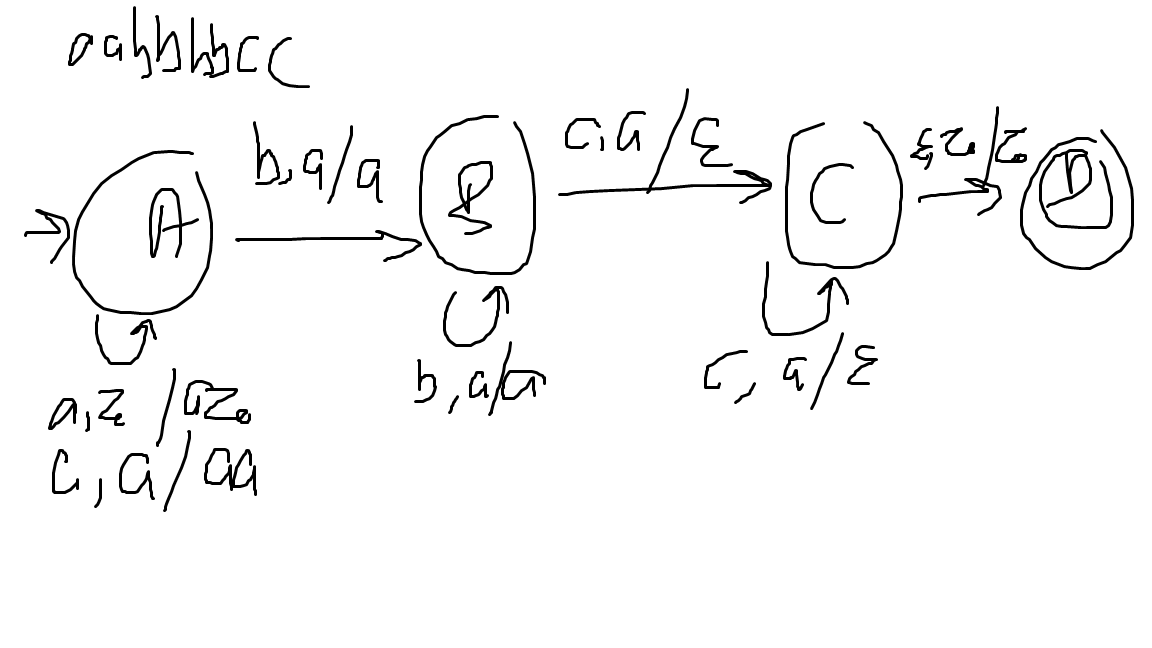 aabbbbcc
b,a/a
c,a/ε
ε,z₀/z₀
A
B
C
D
a,z₀/az₀
a,a/aa
b,a/a
c,a/ε